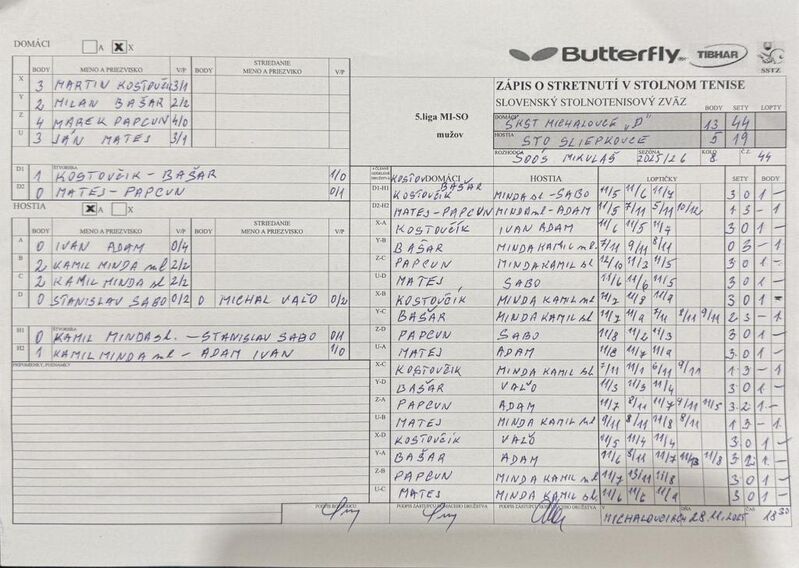 DOMÁCI A X X
Butterfly TIBHAR
SSTZ
BODY MENO A PRIEZVISKO V/P BODY STRIEDANIE MENO A PRIEZVISKO V/P
X 3 MARTIN KOSŤOVČIK 3/1
Y 2 MILAN BAŠAR 2/2
Z 4 MAREK PAPCUN 4/0
U 3 JÁN MATEJ 3/1
D1 ŠTVORHRA 1 KOSTOVČIK - BAŠAR 1/0
D2 0 MATEJ - PAPCUN 0/1
HOSTIA X A X
BODY MENO A PRIEZVISKO V/P BODY STRIEDANIE MENO A PRIEZVISKO V/P
A 0 IVAN ADAM 0/4
B 2 KAMIL MINDA ml 2/2
C 2 KAMIL MINDA sl 2/2
D 0 STANISLAV SABO 0/2 0 MICHAL VAĽO 0/2
H1 ŠTVORHRA 0 KAMIL MINDA sl. - STANISLAV SABO 0/1
H2 1 KAMIL MINDA ml - ADAM IVAN 1/0
PRIPOMIENKY, POZNÁMKY
5.liga MI-SO
mužov
ZÁPIS O STRETNUTÍ V STOLNOM TENISE
SLOVENSKÝ STOLNOTENISOVÝ ZVÄZ BODY SETY LOPTY
DOMÁCI ŠKST MICHALOVCE „D" 13 44
HOSTIA STO SLIEPKOVCE 5 19
ROZHODCA SOÓS MIKULÁŠ SEZÓNA 2025/26 KOLO 8 Č.Z. 44
DOMÁCI HOSTIA LOPTIČKY SETY BODY
D1-H1 KOSTOVČIK BAŠAR MINDA sl - SABO 11/5 11/6 11/7 3 0 1 -
D2-H2 MATEJ - PAPCUN MINDA ml - ADAM 11/5 7/11 5/11 10/12 1 3 - 1
X-A KOSTOVČIK IVAN ADAM 11/6 11/5 11/4 3 0 1 -
Y-B BAŠAR MINDA KAMIL ml. 7/11 9/11 8/11 0 3 - 1
Z-C PAPCUN MINDA KAMIL sl 12/10 11/3 11/5 3 0 1 -
U-D MATEJ SABO 11/6 11/6 11/5 3 0 1 -
X-B KOSTOVČIK MINDA KAMIL ml 11/2 11/8 11/9 3 0 1 -
Y-C BAŠAR MINDA KAMIL sl 11/7 11/9 7/11 8/11 9/11 2 3 - 1
Z-D PAPCUN SABO 11/8 11/2 11/3 3 0 1 -
U-A MATEJ ADAM 11/8 11/7 11/9 3 0 1 -
X-C KOSTOVČIK MINDA KAMIL sl 7/11 11/1 6/11 9/11 1 3 - 1
Y-D BAŠAR VAĽO 11/3 11/3 11/4 3 0 1 -
Z-A PAPCUN ADAM 11/7 8/11 11/7 9/11 11/5 3 2 1 -
U-B MATEJ MINDA KAMIL ml 9/11 8/11 11/8 8/11 1 3 - 1
X-D KOSTOVČIK VAĽO 11/5 11/4 11/4 3 0 1 -
Y-A BAŠAR ADAM 11/6 8/11 11/7 11/8 3 2 1 -
Z-B PAPCUN MINDA KAMIL ml 11/7 13/11 11/8 3 0 1 -
U-C MATEJ MINDA KAMIL sl 11/6 11/6 11/9 3 0 1 -
PODPIS ROZHODCU PODPIS ZÁSTUPCU DOMÁCEHO DRUŽSTVA PODPIS ZÁSTUPCU HOSŤUJÚCEHO DRUŽSTVA V MICHALOVCIACH DŇA 28.11.2025 ČAS 18 30